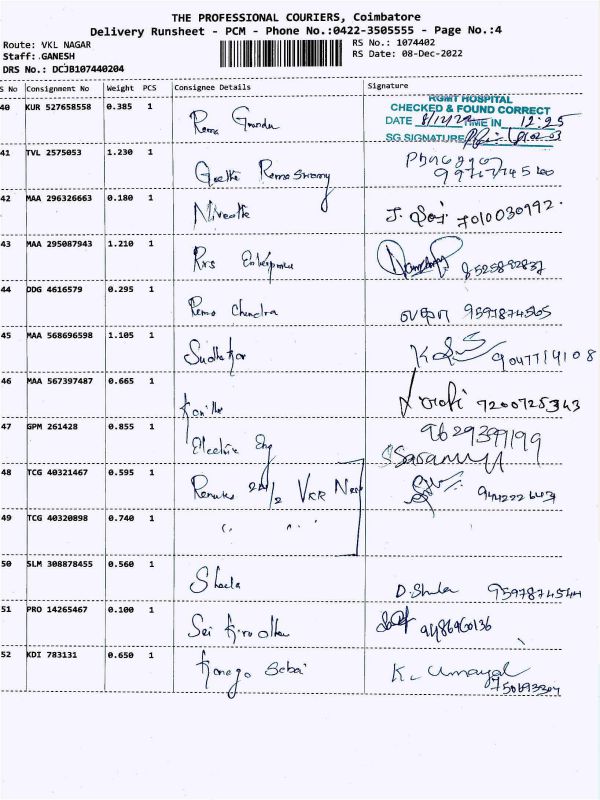 THE PROFESSIONAL COURIERS, Coimbatore
Delivery Runsheet - PCM - Phone No.:0422-3505555 - Page No.:4
Route: VKL NAGAR
RS No.: 1074402
Staff: GANESH
RS Date: 08-Dec-2022
DRS No.: DCJB107440204
S No Consignment No Weight PCS Consignee Details Signature
40 KUR 527658558 0.385 1 Rama
RGMT HOSPITAL
CHECKED & FOUND CORRECT
DATE 8/12/22 TIME IN 12:25
SG SIGNATURE
41 TVL 2575053 1.230 1 Geetha Ramaswamy
42 MAA 296326663 0.180 1 Nivetha J. 7010030992.
43 MAA 295087943 1.210 1 Rvs Enterprise 8525892837
44 DDG 4616579 0.295 1 Rama Chandra 9597874565
45 MAA 568696598 1.105 1 Sudhakar 9047714108
46 MAA 567397487 0.665 1 9200725343
47 GPM 261428 0.855 1 Electric Eng 9629399199
Saranya
48 TCG 40321467 0.595 1 Renuka VKR
49 TCG 40320898 0.740 1 " "
50 SLM 308878455 0.560 1 Sheela D. Shula 9597874544
51 PRO 14265467 0.100 1 Sai 9486960136
52 KDI 783131 0.650 1 K. Umayal